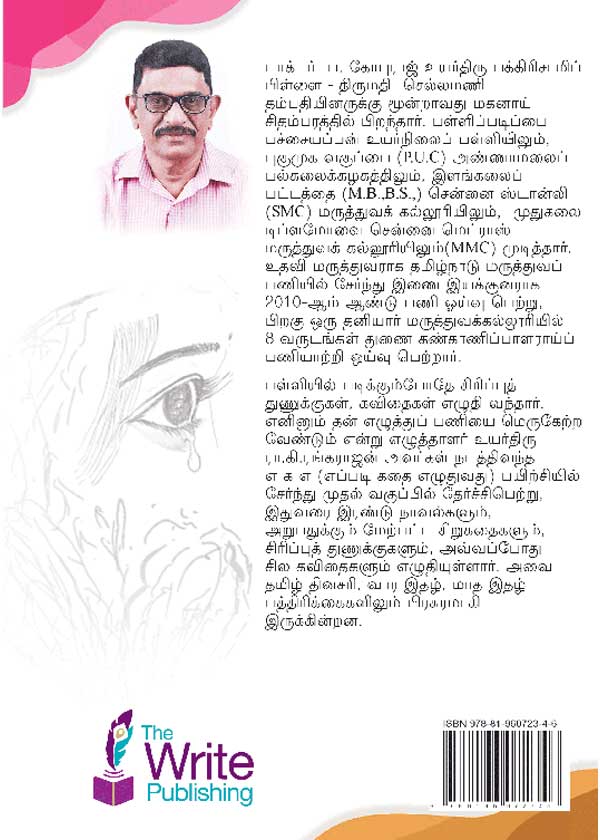 உயர்திரு
பிள்ளை - திருமதி செல்லமணி
தம்பதியினருக்கு மூன்றாவது மகனாய்
சிதம்பரத்தில் பிறந்தார். பள்ளிப்படிப்பை
பச்சையப்பன் உயர்நிலைப் பள்ளியிலும்,
புகுமுக வகுப்பை (P.U.C) அண்ணாமலைப்
பல்கலைக்கழகத்திலும், இளங்கலைப்
பட்டத்தை (M.B.,B.S.,) சென்னை ஸ்டான்லி
(SMC) மருத்துவக் கல்லூரியிலும், முதுகலை
டிப்ளமோவை சென்னை மெட்ராஸ்
மருத்துவக் கல்லூரியிலும்(MMC) முடித்தார்.
உதவி மருத்துவராக தமிழ்நாடு மருத்துவப்
பணியில் சேர்ந்து இணை இயக்குனராக
2010-ஆம் ஆண்டு பணி ஓய்வு பெற்று,
பிறகு ஒரு தனியார் மருத்துவக்கல்லூரியில்
8 வருடங்கள் துணை கண்காணிப்பாளராய்ப்
பணியாற்றி ஓய்வு பெற்றார்.
பள்ளியில் படிக்கும்போதே சிரிப்புத்
துணுக்குகள், கவிதைகள் எழுதி வந்தார்.
எனினும் தன் எழுத்துப் பணியை மெருகேற்ற
வேண்டும் என்று எழுத்தாளர் உயர்திரு
ரா.கி.ரங்கராஜன் அவர்கள் நடத்திவந்த
எ க எ (எப்படி கதை எழுதுவது) பயிற்சியில்
சேர்ந்து முதல் வகுப்பில் தேர்ச்சிபெற்று,
இதுவரை இரண்டு நாவல்களும்,
அறுபதுக்கும் மேற்பட்ட சிறுகதைகளும்,
சிரிப்புத் துணுக்குகளும், அவ்வப்போது
சில கவிதைகளும் எழுதியுள்ளார். அவை
தமிழ் தினசரி, வார இதழ், மாத இதழ்
பத்திரிக்கைகளிலும் பிரசுரமாகி
இருக்கின்றன.
The
Write
Publishing
ISBN 978-81-950723-4-6